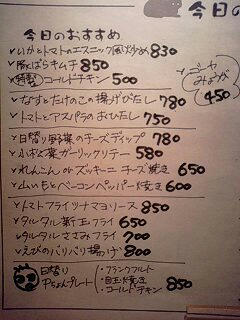 今日のおすすめ
いかとトマトのエスニック風炒め 830
豚とばらキムチ 850
コールドチキン 500
なすとたけのこの揚げびたし 780
トマトとアスパラのおひたし 750
日替り野菜のチーズディップ 780
ふわふわ菜ガーリックソテー 580
れんこん or ズッキーニ チーズ焼き 650
山いもとベーコンペッパー焼き 600
トマトフライツナマヨソース 850
タルタル新玉フライ 650
タルタルささみフライ 700
えびのパリパリ揚げ 800
日替り
Pちょんプレート
・フランクフルト
・目玉焼き
・コールドチキン
850
今日の
ゴーヤ
みょうが
450